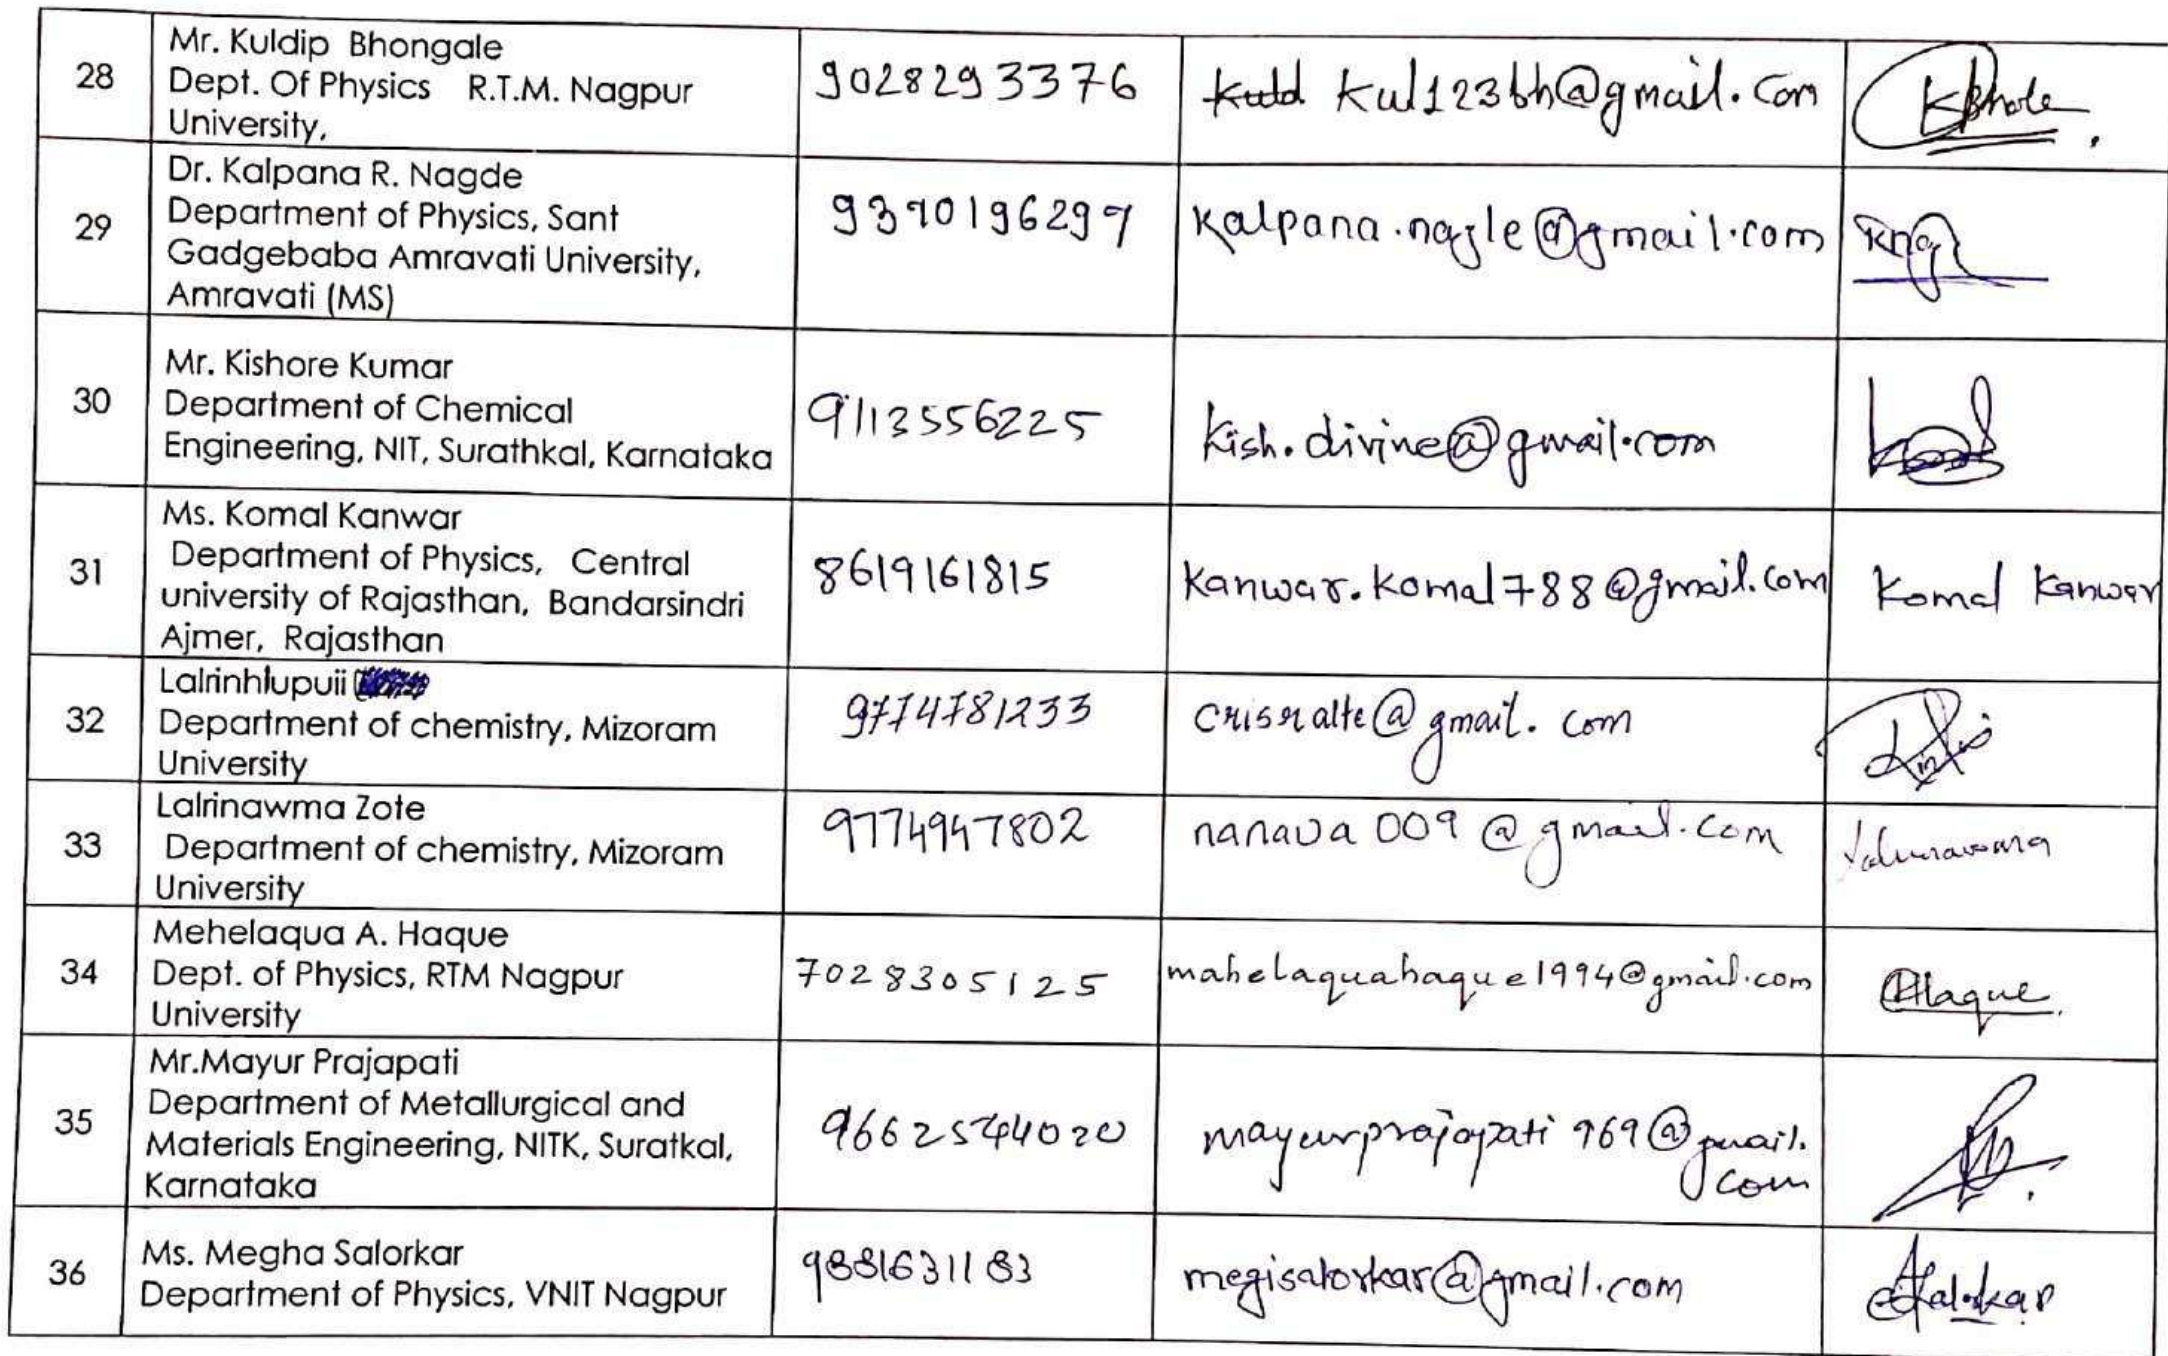 28
Mr. Kuldip Bhongale
Dept. Of Physics R.T.M. Nagpur
University,
9028293376
kul123bh@gmail.com
29
Dr. Kalpana R. Nagde
Department of Physics, Sant
Gadgebaba Amravati University,
Amravati (MS)
9370196297
@gmail.com
30
Mr. Kishore Kumar
Department of Chemical
Engineering, NIT, Surathkal, Karnataka
9113556225
kish.divine@gmail.com
31
Ms. Komal Kanwar
Department of Physics, Central
university of Rajasthan, Bandarsindri
Ajmer, Rajasthan
8619161815
kanwar.komal788@gmail.com
Komal Kanwar
32
Lalrinhlupuii
Department of chemistry, Mizoram
University
9774781233
crisralte@gmail.com
33
Lalrinawma Zote
Department of chemistry, Mizoram
University
9774947802
nanava009@gmail.com
34
Mehelaqua A. Haque
Dept. of Physics, RTM Nagpur
University
7028305125
mahelaquahaque1994@gmail.com
Haque
35
Mr.Mayur Prajapati
Department of Metallurgical and
Materials Engineering, NITK, Suratkal,
Karnataka
9662544020
mayurprajapati969@gmail.
com
36
Ms. Megha Salorkar
Department of Physics, VNIT Nagpur
9881631183
megisalorkar@gmail.com